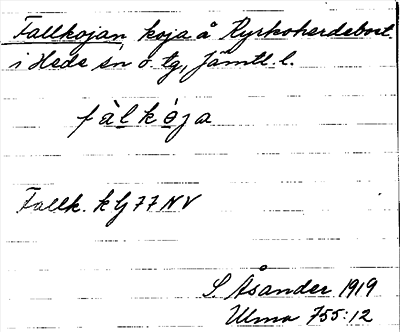 Fallkojan, koja å Kyrkoherdebost.
i Hede sn o. tg, Jämtl. l.
fàlkója
Fallk. k lj 77 NV
S. Åsander 1919
Ulma 755:12